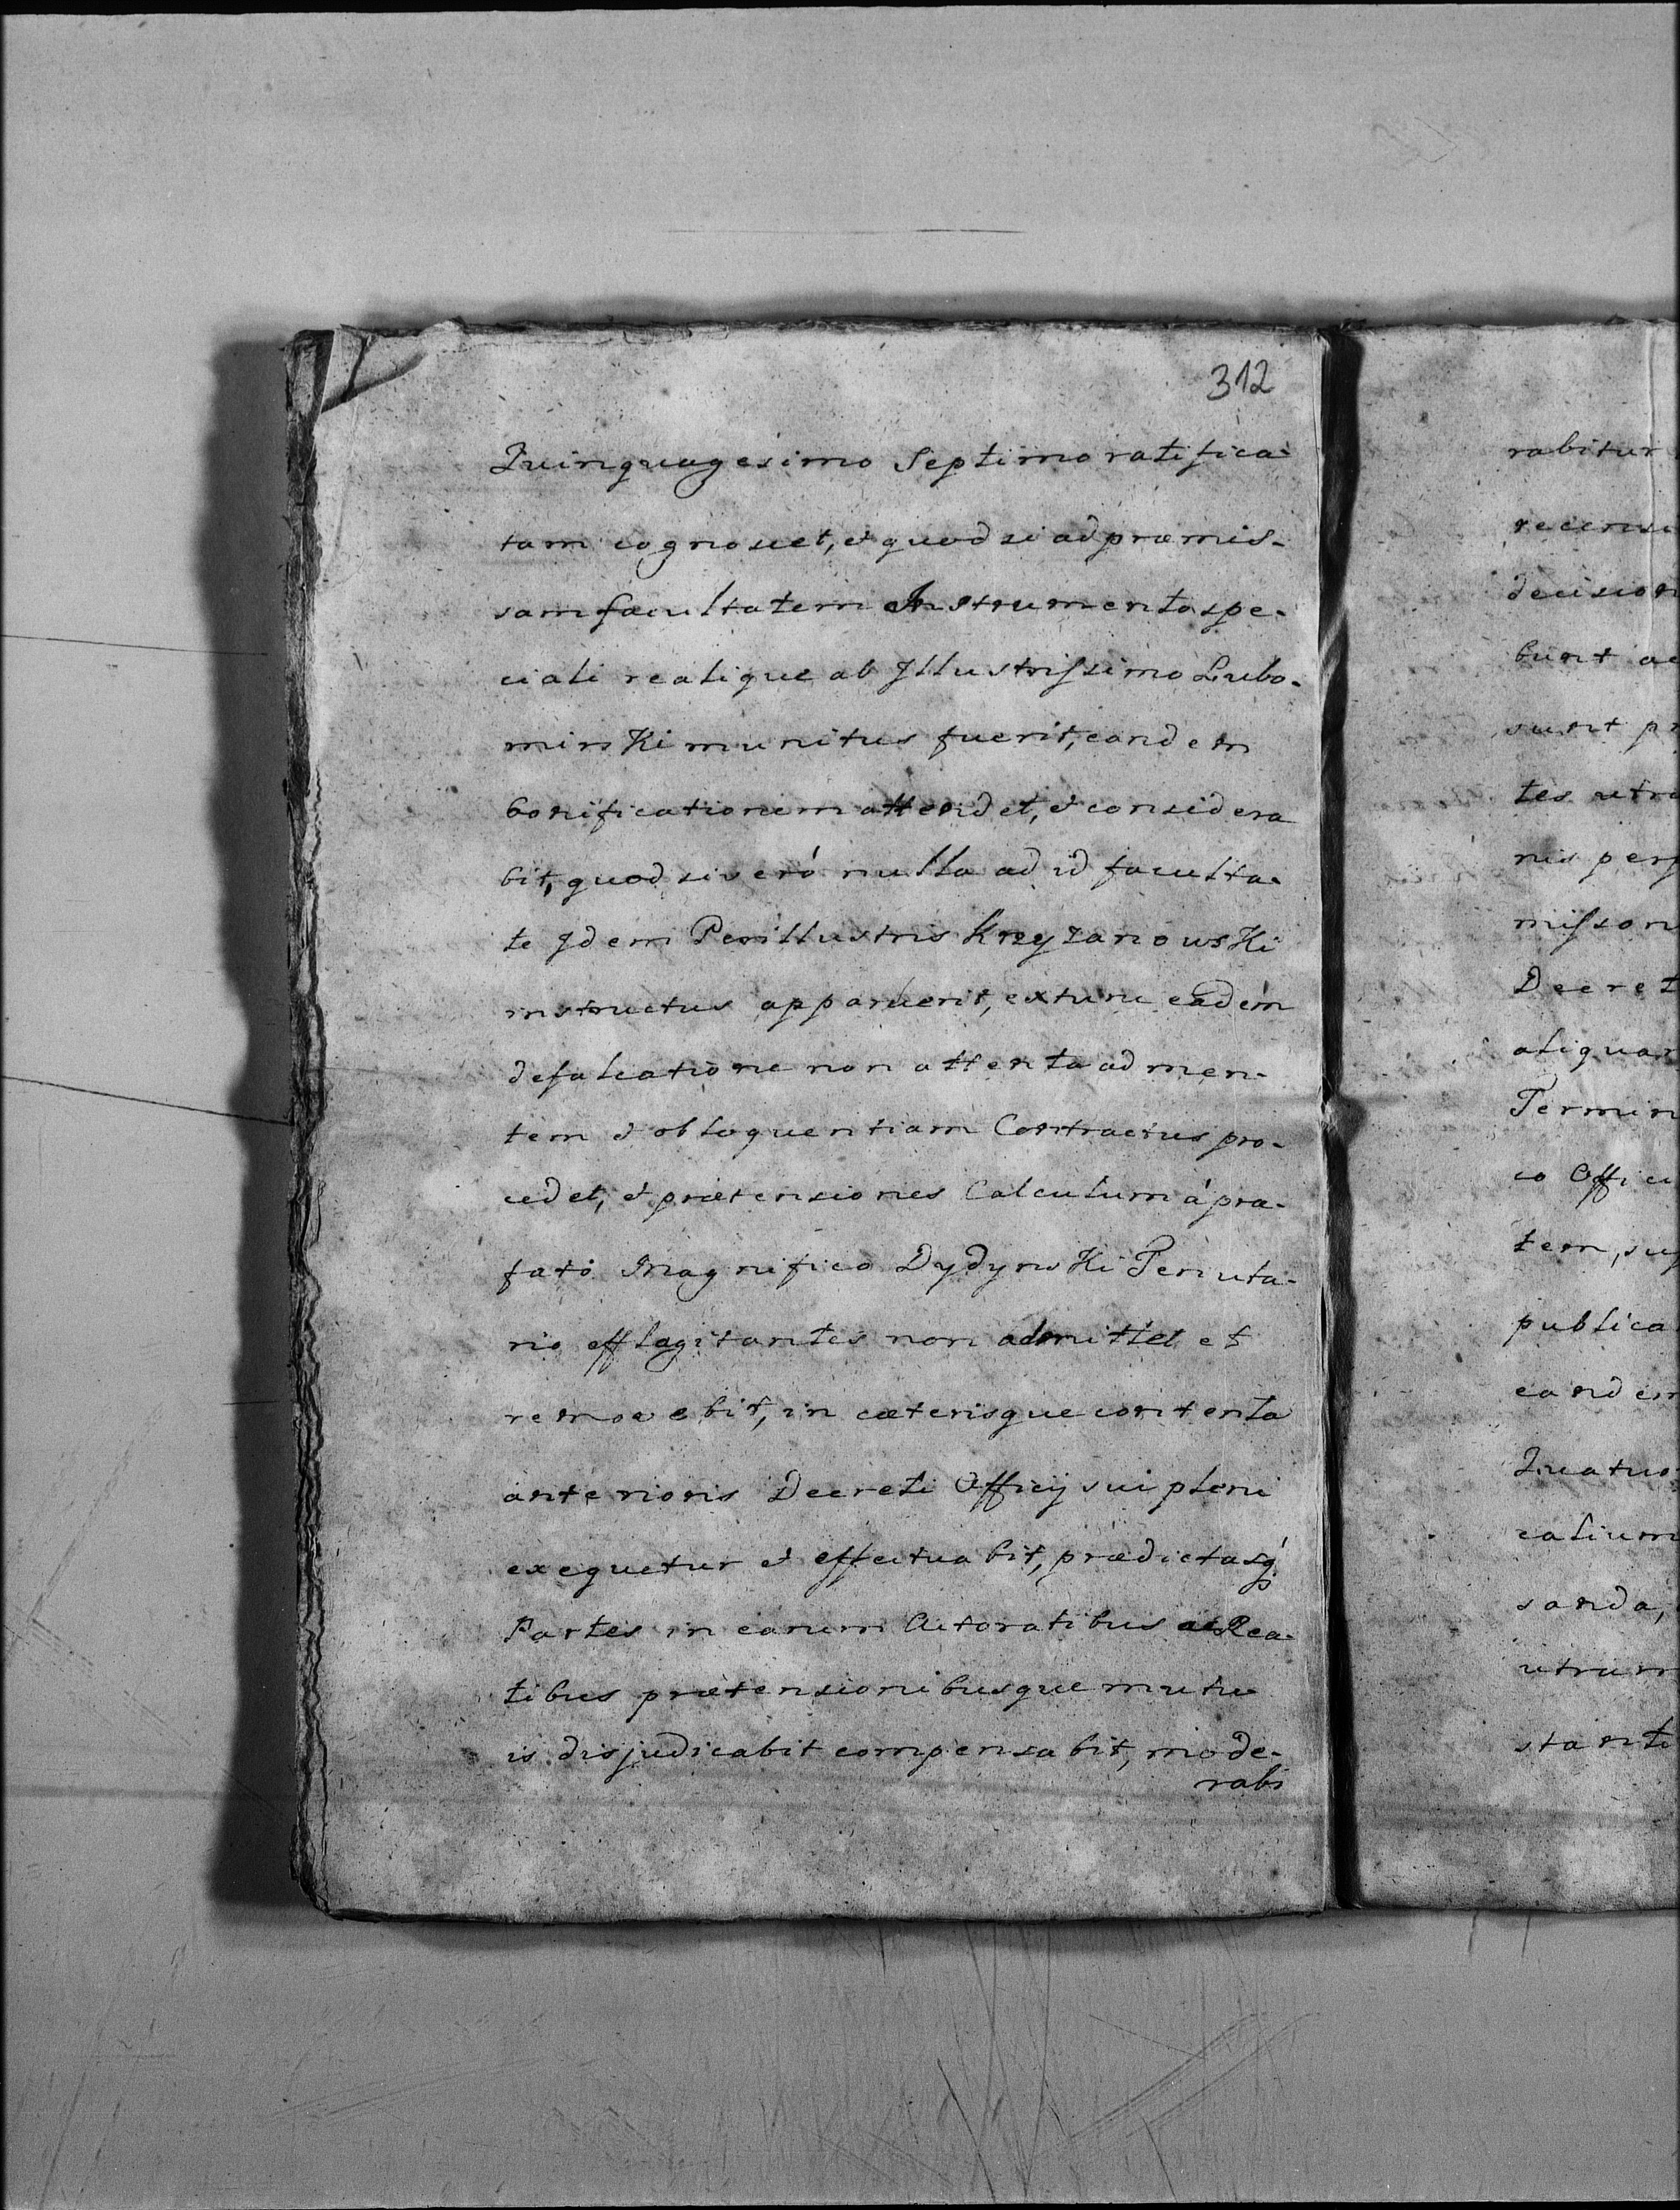 312
Quinquagesimo Septimo ratifica-
tam cognoscet, et quod si ad præmis-
sam facultatem Instrumento spe-
ciali realique ab Jllustrissimo Lubo-
mirski munitus fuerit, eandem
bonificationem attendet, et considera
bit, quod si veró nulla ad id faculta-
te Jdem Perillustris Krzyzanowski
instructus apparuerit, extunc eadem
defalcatione non attenta ad men-
tem et obloquentiam Contractus pro-
cedet, et prætensiones Calculum á præ-
fato Magnifico Dydynski Tenuta-
rio efflagitantes non admittet et
removebit, in cæterisque contenta
anterioris Decreti Officij sui plene
exequetur et effectuabit, prædictasq́
Partes in earum Actoratibus ac Rea-
tibus prætensionibusque mutu-
is disjudicabit compensabit, mode-
rabi
rabitur
recensi
decision
bunt ac
sunt pr
tes utri
nis perp
misson
Decret
aliquar
Termin
co Offici
tem, sup
publica
eandem
Quatuo
calium
sanda,
utrum
stanti